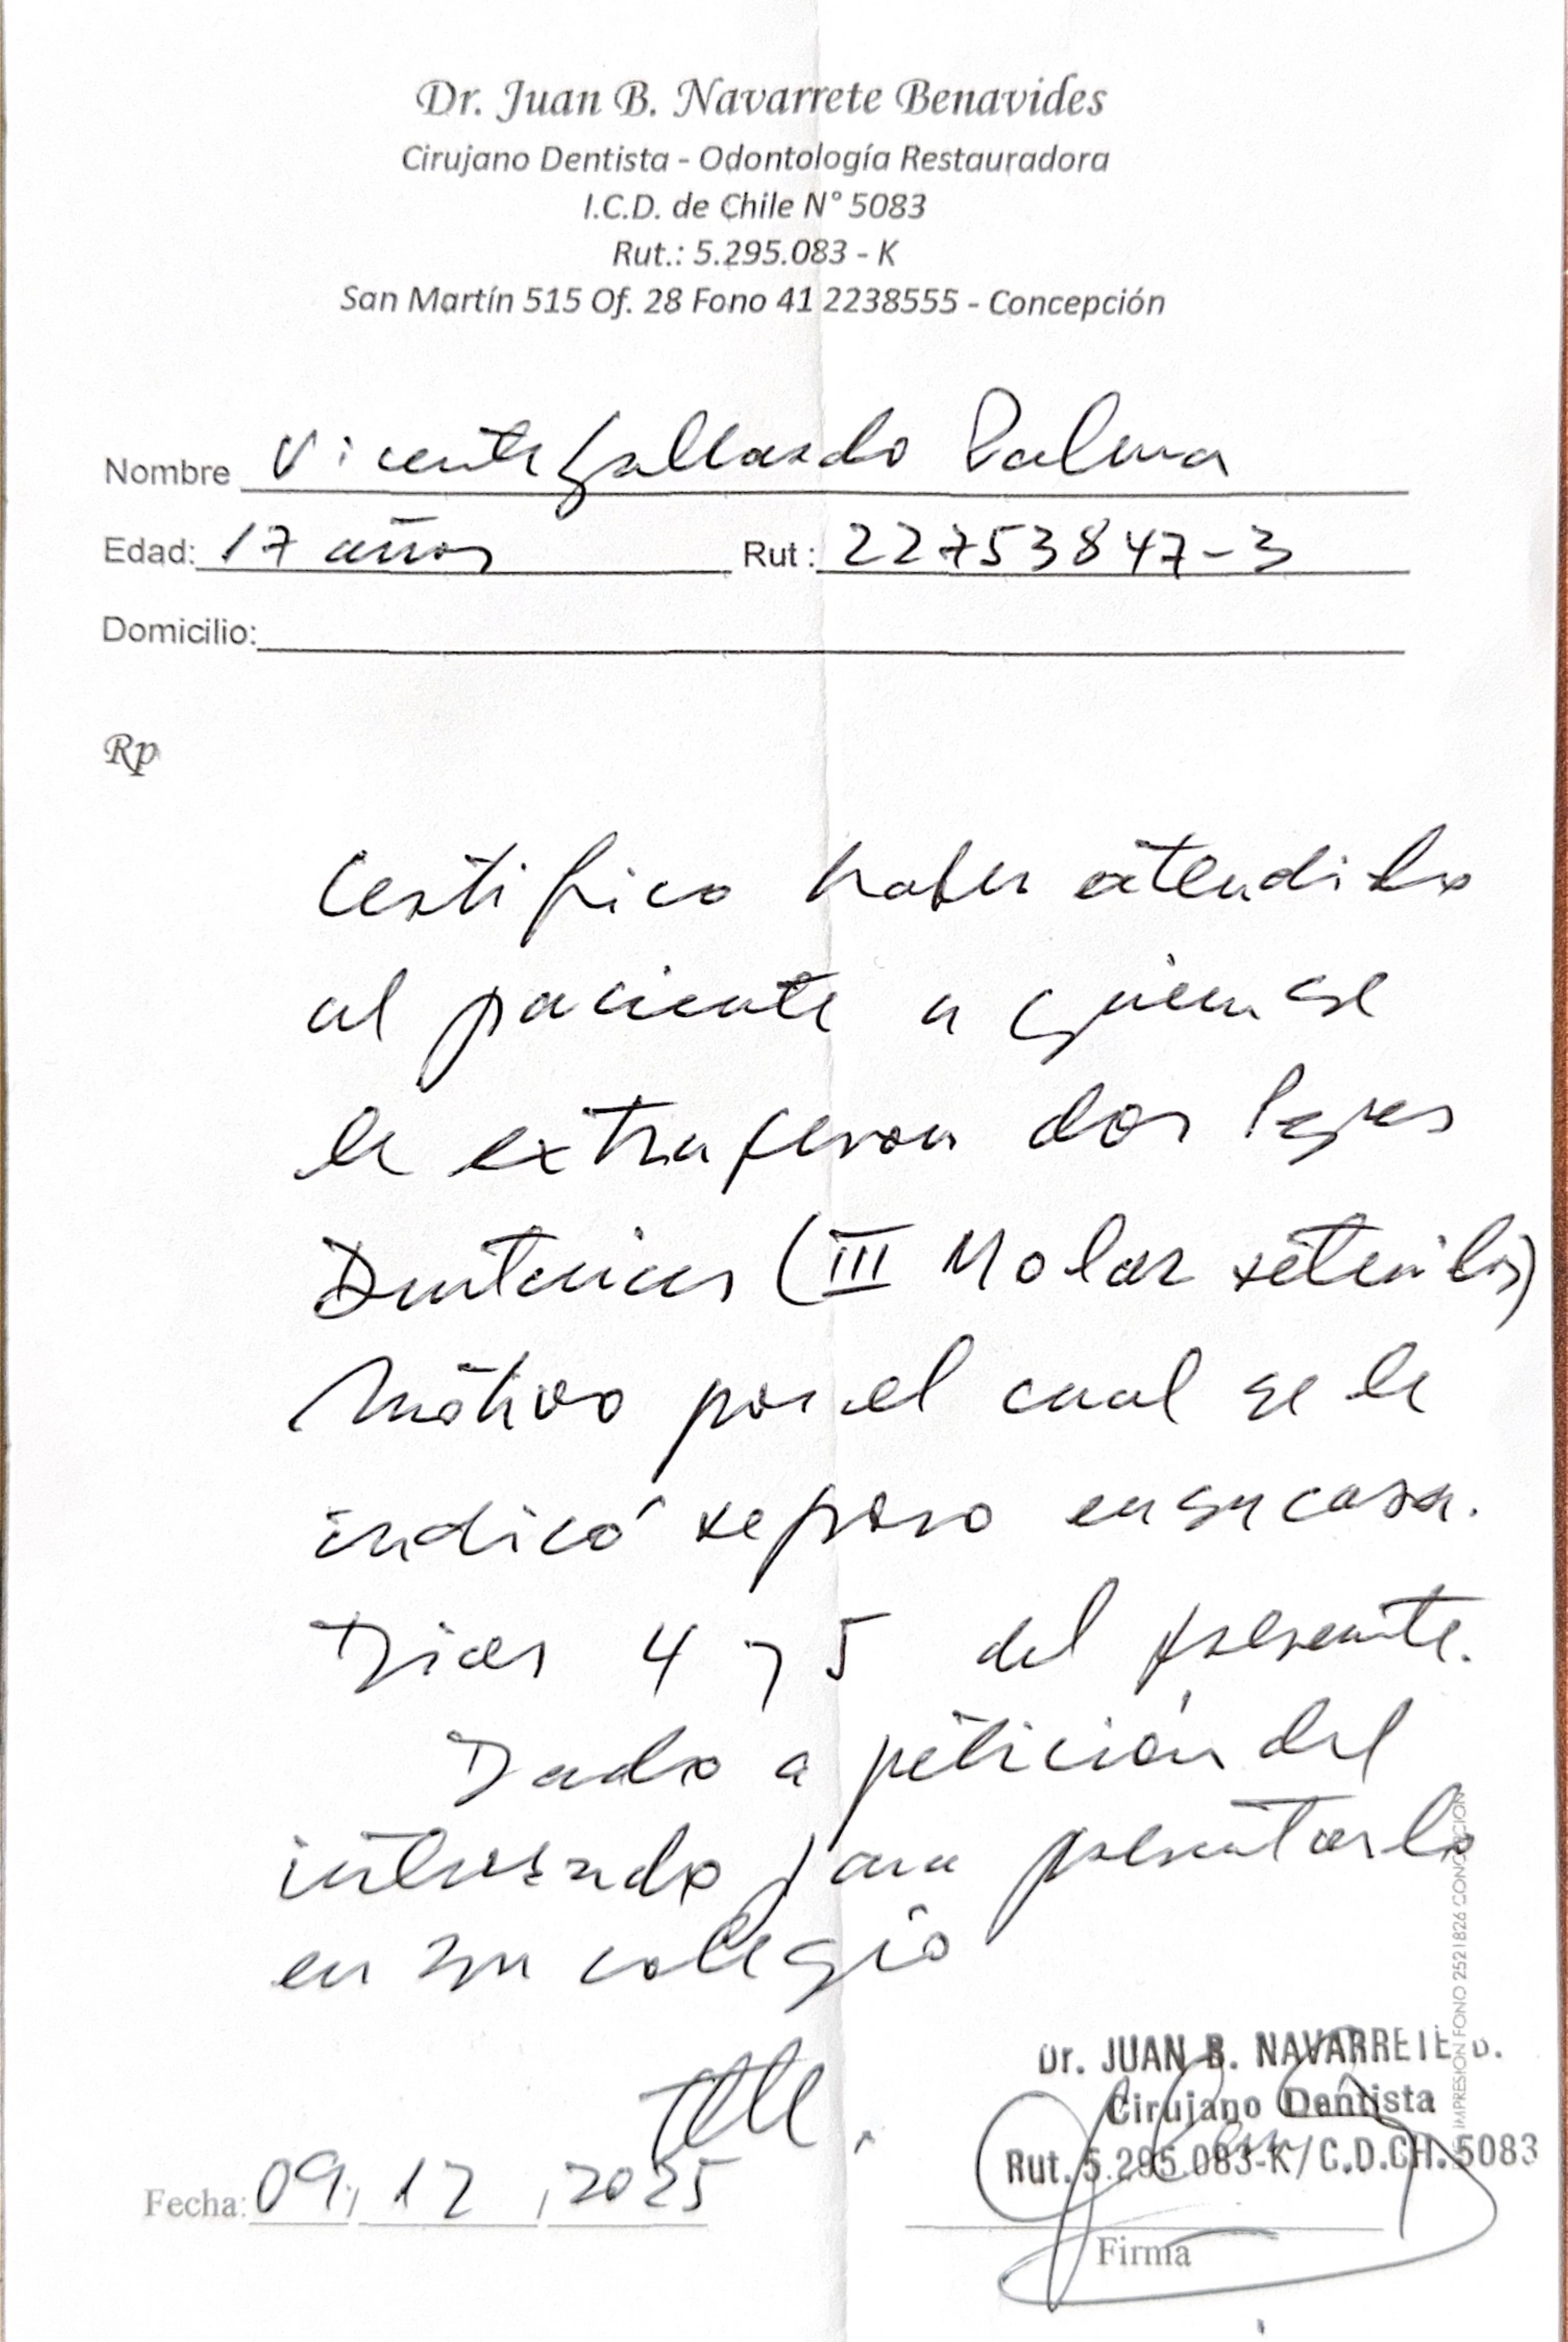 Dr. Juan B. Navarrete Benavides
Cirujano Dentista - Odontología Restauradora
I.C.D. de Chile N° 5083
Rut.: 5.295.083 - K
San Martín 515 Of. 28 Fono 41 2238555 - Concepción
Nombre Vicente Gallardo Palma
Edad: 17 años Rut: 22753847-3
Domicilio:
Rp
Certifico haber atendido
al paciente a quien se
le extrajeron dos
Dentarias (III Molar retenidos)
Motivo por el cual se le
indicó reposo en su casa.
Dias 4 y 5 del presente.
Dado a petición del
interesado para presentarlo
en su colegio
Dr. JUAN B. NAVARRETE B.
Cirujano Dentista
Rut. 5.295.083-K/C.D.CH. 5083
Fecha: 09, 12, 2025
Firma
IMPRESION FONO 2521826 CONCEPCION